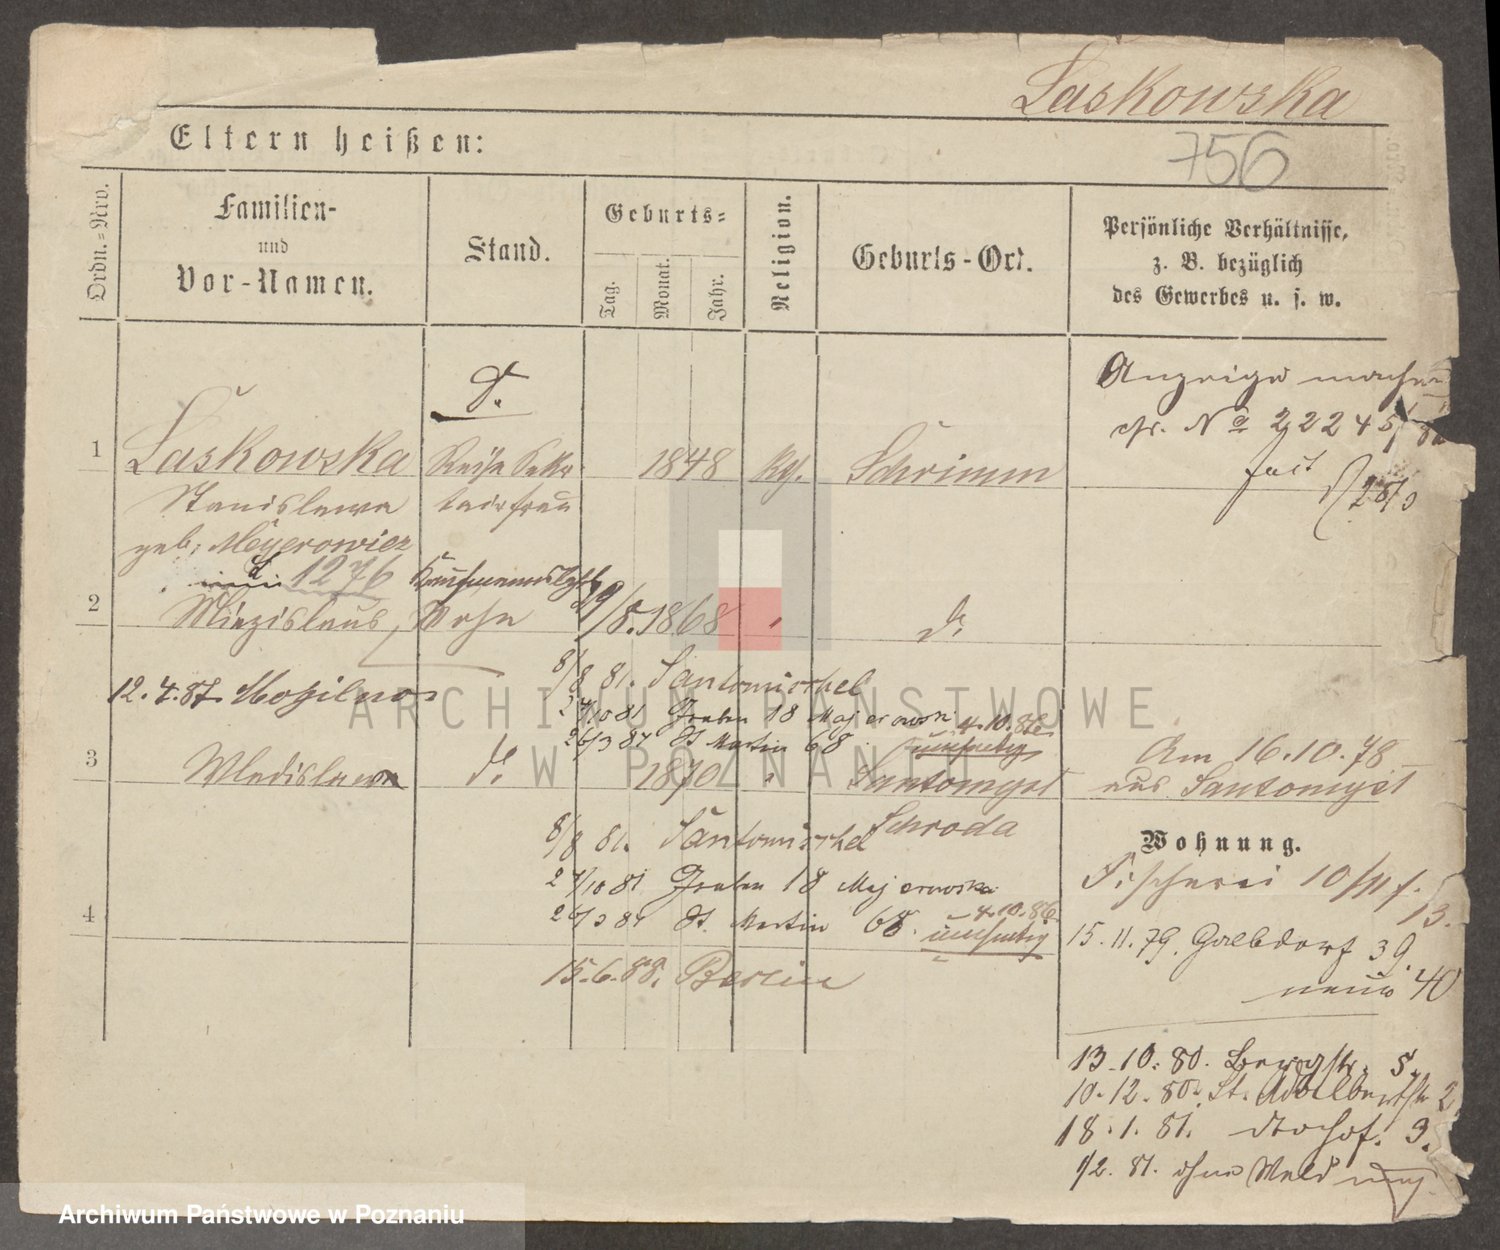 Laskowska
756
Eltern heißen:
Ordn.-Nro.
Familien-
und
Vor-Namen.
Stand.
Geburts-
Tag.
Monat.
Jahr.
Religion.
Geburts-Ort.
Persönliche Verhältnisse,
z. B. bezüglich
des Gewerbes u. s. w.
Anzeige machen
No 22245
fait
1
Laskowska
1848
Schrimm
Stanislawa
geb. Meyerowicz
1276
2
Miezislaus,
Sohn
29/8. 1868
d.
12.4.87 Mogilno
8/8 81. Santomischel
27/10 81 Graben 18 Majerowski
26/3 84 St Martin 68
4.10.86
3
Wladislawa
d.
1870
Santomysl
Schroda
Am 16.10.78
aus Santomysl
8/8 81. Santomischel
27/10 81 Graben 18 Majerowska
4
26/3 84 St. Martin 68.
4.10.86
15.6.88. Berlin
Wohnung.
Fischerei 10/11
13.
15.11.79. Halbdorf 39.
40
13.10.80. Bergstr. 5.
10.12.80. St. Adalbertstr 2
18.1.81. 3.
1/2. 81. ohne Meldung
ARCHIWUM PAŃSTWOWE
W POZNANIU
Archiwum Państwowe w Poznaniu